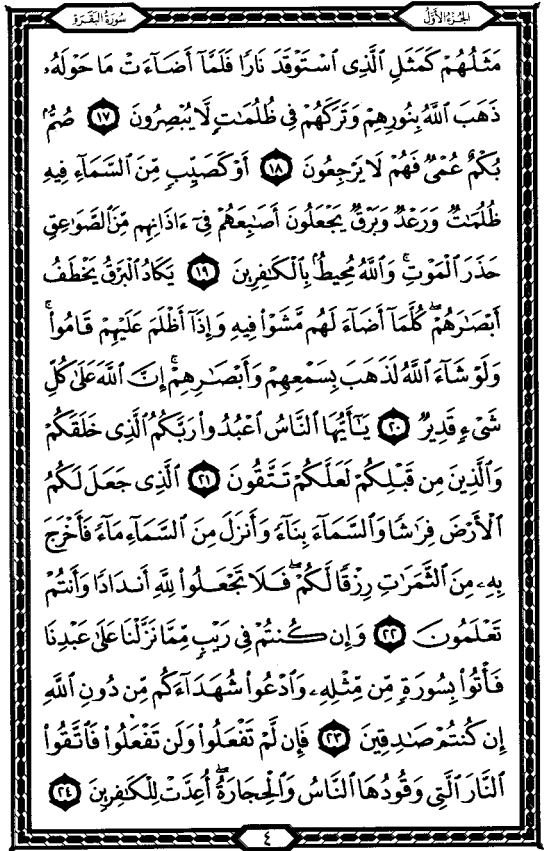 الجُزْءُ الأَوَّلُ
سُورَةُ البَقَرَةِ
مَثَلُهُمْ كَمَثَلِ الَّذِى اسْتَوْقَدَ نَارًا فَلَمَّآ أَضَآءَتْ مَا حَوْلَهُۥ
ذَهَبَ اللَّهُ بِنُورِهِمْ وَتَرَكَهُمْ فِى ظُلُمَٰتٍ لَّا يُبْصِرُونَ ١٧ صُمٌّۢ
بُكْمٌ عُمْىٌ فَهُمْ لَا يَرْجِعُونَ ١٨ أَوْ كَصَيِّبٍ مِّنَ السَّمَآءِ فِيهِ
ظُلُمَٰتٌ وَرَعْدٌ وَبَرْقٌ يَجْعَلُونَ أَصَٰبِعَهُمْ فِىٓ ءَاذَانِهِم مِّنَ الصَّوَٰعِقِ
حَذَرَ الْمَوْتِ ۚ وَاللَّهُ مُحِيطٌۢ بِالْكَٰفِرِينَ ١٩ يَكَادُ الْبَرْقُ يَخْطَفُ
أَبْصَٰرَهُمْ ۖ كُلَّمَآ أَضَآءَ لَهُم مَّشَوْا۟ فِيهِ وَإِذَآ أَظْلَمَ عَلَيْهِمْ قَامُوا۟ ۚ
وَلَوْ شَآءَ اللَّهُ لَذَهَبَ بِسَمْعِهِمْ وَأَبْصَٰرِهِمْ ۚ إِنَّ اللَّهَ عَلَىٰ كُلِّ
شَىْءٍ قَدِيرٌ ٢٠ يَٰٓأَيُّهَا النَّاسُ اعْبُدُوا۟ رَبَّكُمُ الَّذِى خَلَقَكُمْ
وَالَّذِينَ مِن قَبْلِكُمْ لَعَلَّكُمْ تَتَّقُونَ ٢١ الَّذِى جَعَلَ لَكُمُ
الْأَرْضَ فِرَٰشًا وَالسَّمَآءَ بِنَآءً وَأَنزَلَ مِنَ السَّمَآءِ مَآءً فَأَخْرَجَ
بِهِۦ مِنَ الثَّمَرَٰتِ رِزْقًا لَّكُمْ ۖ فَلَا تَجْعَلُوا۟ لِلَّهِ أَندَادًا وَأَنتُمْ
تَعْلَمُونَ ٢٢ وَإِن كُنتُمْ فِى رَيْبٍ مِّمَّا نَزَّلْنَا عَلَىٰ عَبْدِنَا
فَأْتُوا۟ بِسُورَةٍ مِّن مِّثْلِهِۦ وَادْعُوا۟ شُهَدَآءَكُم مِّن دُونِ اللَّهِ
إِن كُنتُمْ صَٰدِقِينَ ٢٣ فَإِن لَّمْ تَفْعَلُوا۟ وَلَن تَفْعَلُوا۟ فَاتَّقُوا۟
النَّارَ الَّتِى وَقُودُهَا النَّاسُ وَالْحِجَارَةُ ۖ أُعِدَّتْ لِلْكَٰفِرِينَ ٢٤
٤